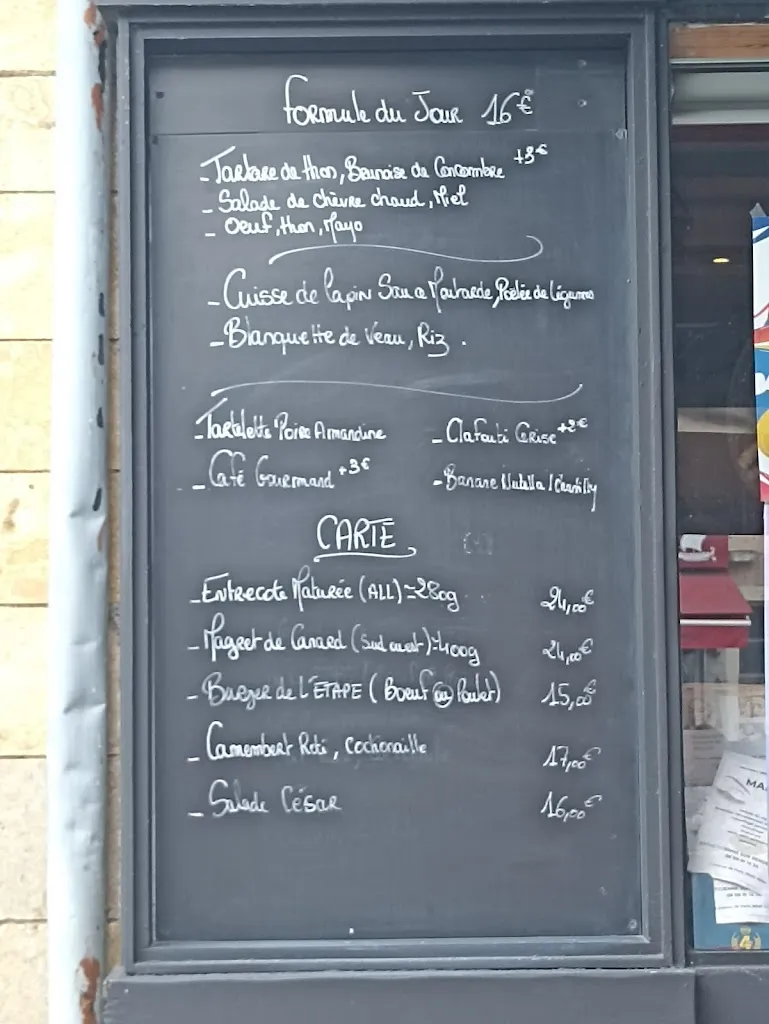 Formule du Jour 16€
- Tartare de thon, Brunoise de Concombre +3€
- Salade de chèvre chaud, Miel
- Oeuf, thon, Mayo
- Cuisse de lapin Sauce Moutarde, Poêlée de Légumes
- Blanquette de Veau, Riz.
- Tartelette Poire Amandine
- Clafouti Cerise +2€
- Café Gourmand +3€
- Banane Nutella / Chantilly
CARTE
- Entrecote Maturée (ALL) ≃280g 24,00€
- Magret de Canard (Sud ouest) ≃400g 24,00€
- Burger de L'ÉTAPE (Boeuf ou Poulet) 15,00€
- Camembert Roti, Cochonaille 17,00€
- Salade César 16,00€
MA